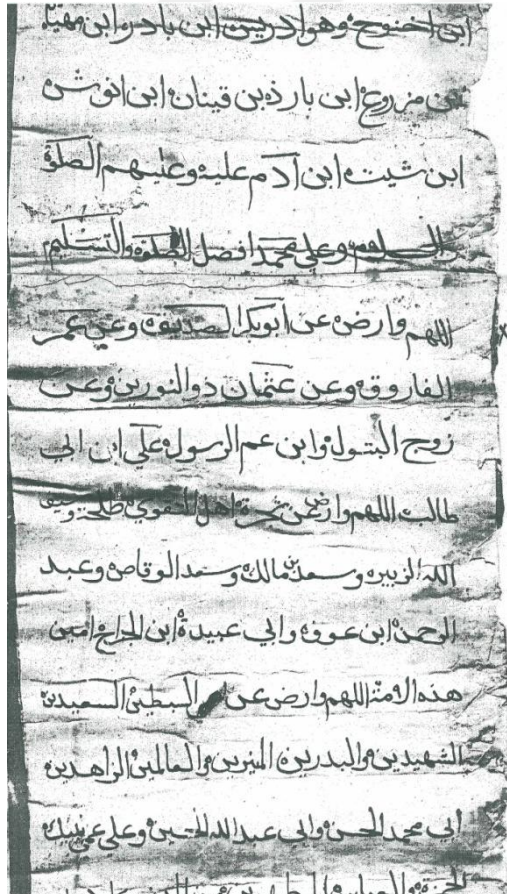 ابن اخنوخ وهو ادريس ابن يادر ابن مهيلا
بن مزروع ابن يارد بن قينان ابن انوش
ابن شيث ابن آدم عليه وعليهم الصلوة
والسلام وعلى محمد افضل الصلوة والتسليم
اللهم وارض عن ابوبكر الصديق وعن عمر
الفاروق وعن عثمان ذو النورين وعن
زوج البتول وابن عم الرسول علي ابن ابي
طالب اللهم وارض عن اهل التقوي طلحة وسيف
الله الزبير وسعد بن مالك وسعد الوقاص وعبد
الرحمن ابن عوف وابي عبيدة ابن الجراح امين
هذه الامة اللهم وارض عن السبطين السعيدين
الشهيدين والبدرين المنيرين والعالمين الزاهدين
ابي محمد الحسن وابي عبد الله الحسين وعلى عمي نبيك